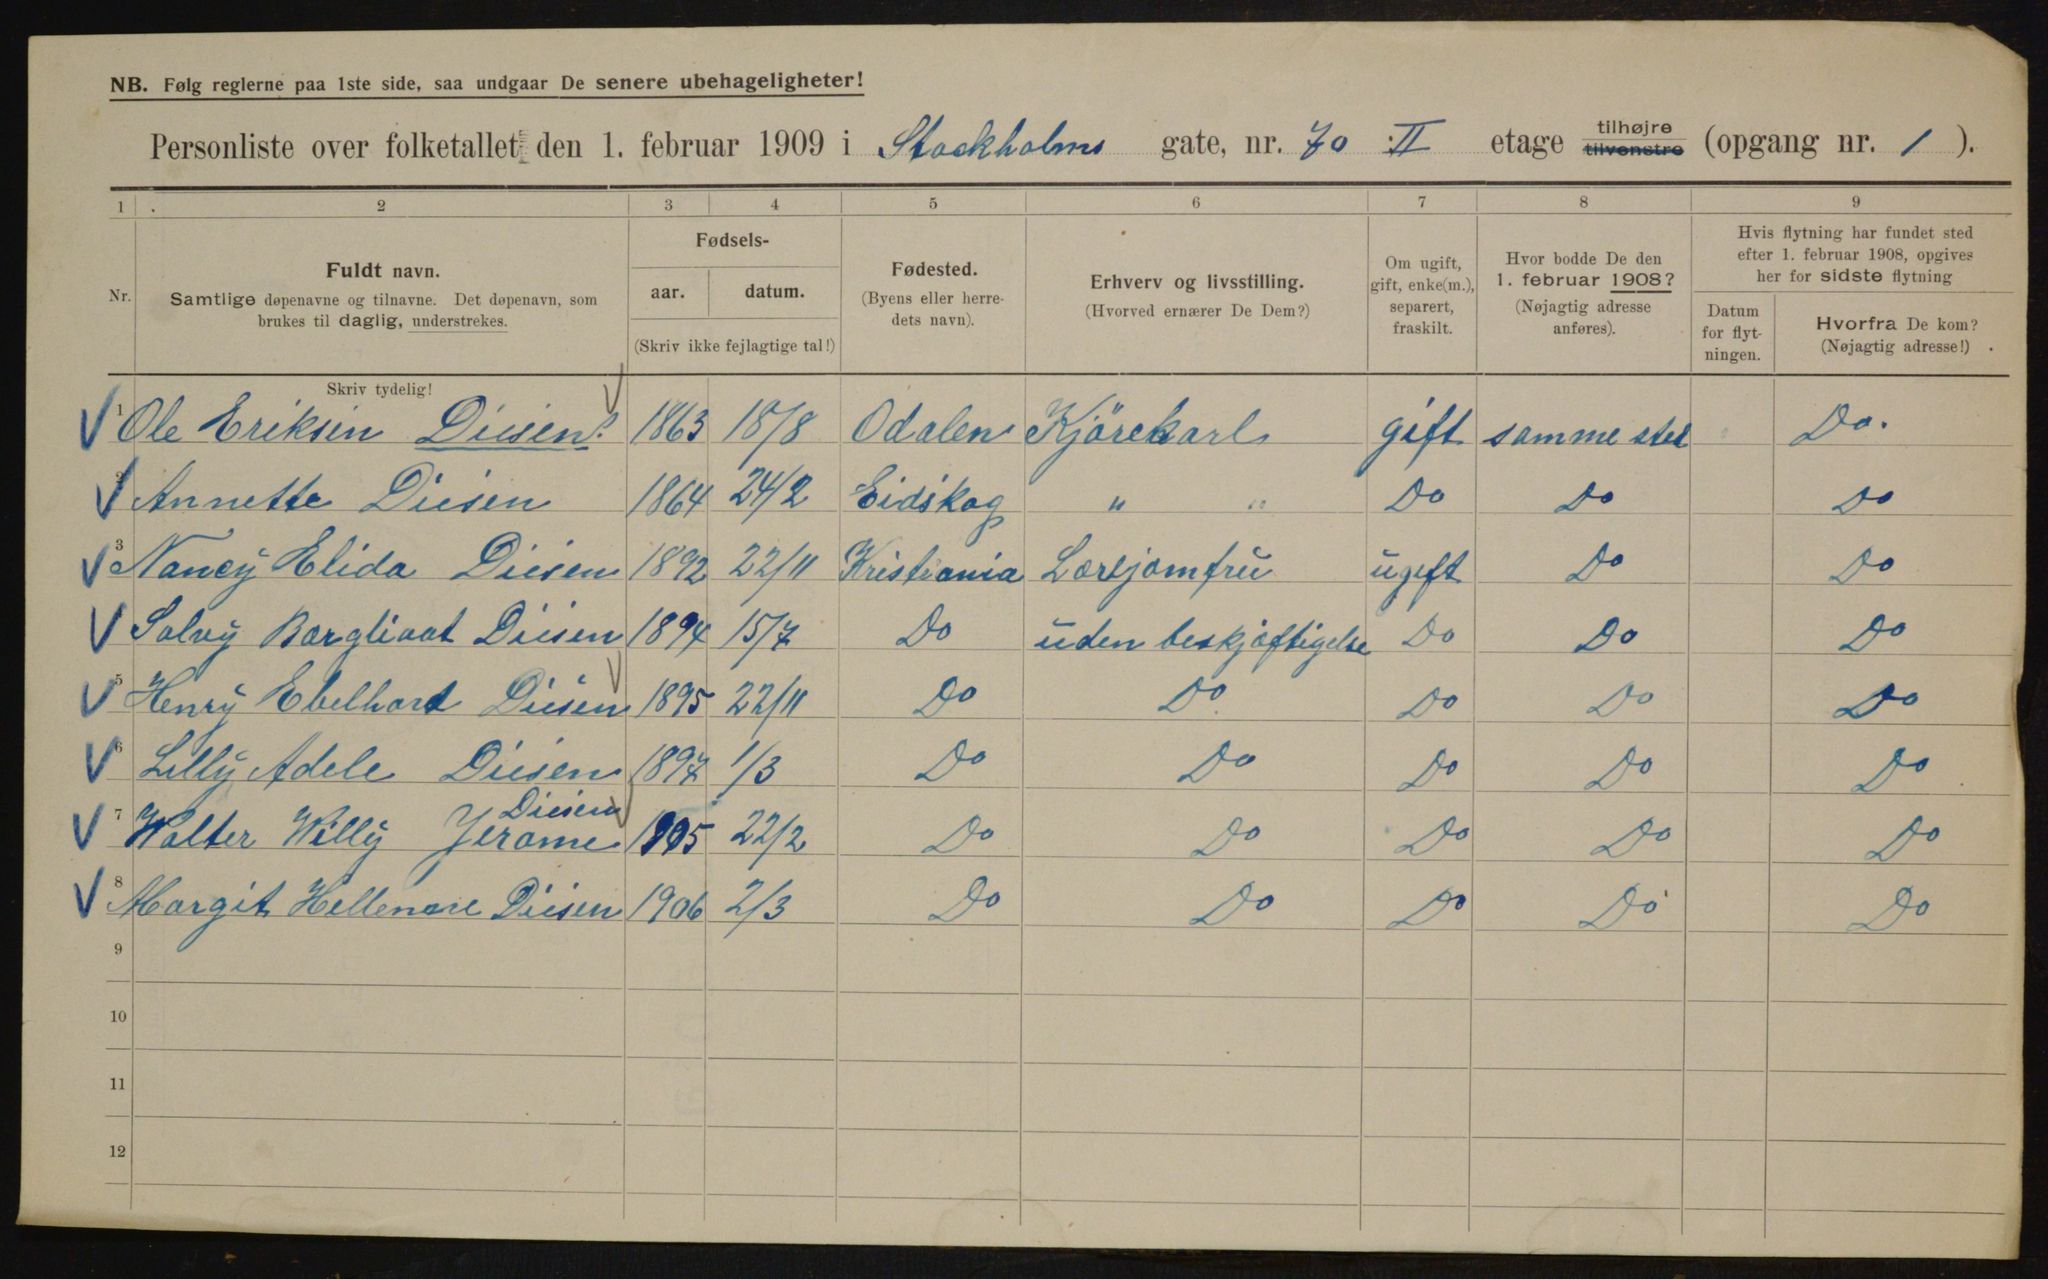 NB. Følg reglerne paa 1ste side, saa undgaar De senere ubehageligheter!
Personliste over folketallet den 1. februar 1909 i Stockholms gate, nr. 70 II etage tilhøjre tilvenstre (opgang nr. 1 ).
1 2 3 4 5 6 7 8 9
Nr.
Fuldt navn.
Samtlige døpenavne og tilnavne. Det døpenavn, som
brukes til daglig, understrekes.
Skriv tydelig!
Fødsels-
aar. datum.
(Skriv ikke fejlagtige tal!)
Fødested.
(Byens eller herre-
dets navn).
Erhverv og livsstilling.
(Hvorved ernærer De Dem?)
Om ugift,
gift, enke(m.),
separert,
fraskilt.
Hvor bodde De den
1. februar 1908?
(Nøjagtig adresse
anføres).
Hvis flytning har fundet sted
efter 1. februar 1908, opgives
her for sidste flytning
Datum
for flyt-
ningen.
Hvorfra De kom?
(Nøjagtig adresse!)
1 Ole Eriksen Diesen. 1863 18/8 Odalen Kjörekarl gift samme sted Do.
2 Annette Diesen 1864 24/2 Eidskog " " Do Do Do
3 Nancy Elida Diesen 1892 22/11 Kristiania Lærejomfru ugift Do Do
Solvy Bergliaat Diesen 1894 15/7 Do uden beskjæftigelse Do Do Do
5 Henry Ebelhard Diesen 1895 22/11 Do Do Do Do Do
6 Lilly Adele Diesen 1897 1/3 Do Do Do Do Do
7 Walter Willy Jerome Diesen 1905 22/2 Do Do Do Do Do
8 Margit Diesen 1906 2/3 Do Do Do Do Do
9
10
11
12